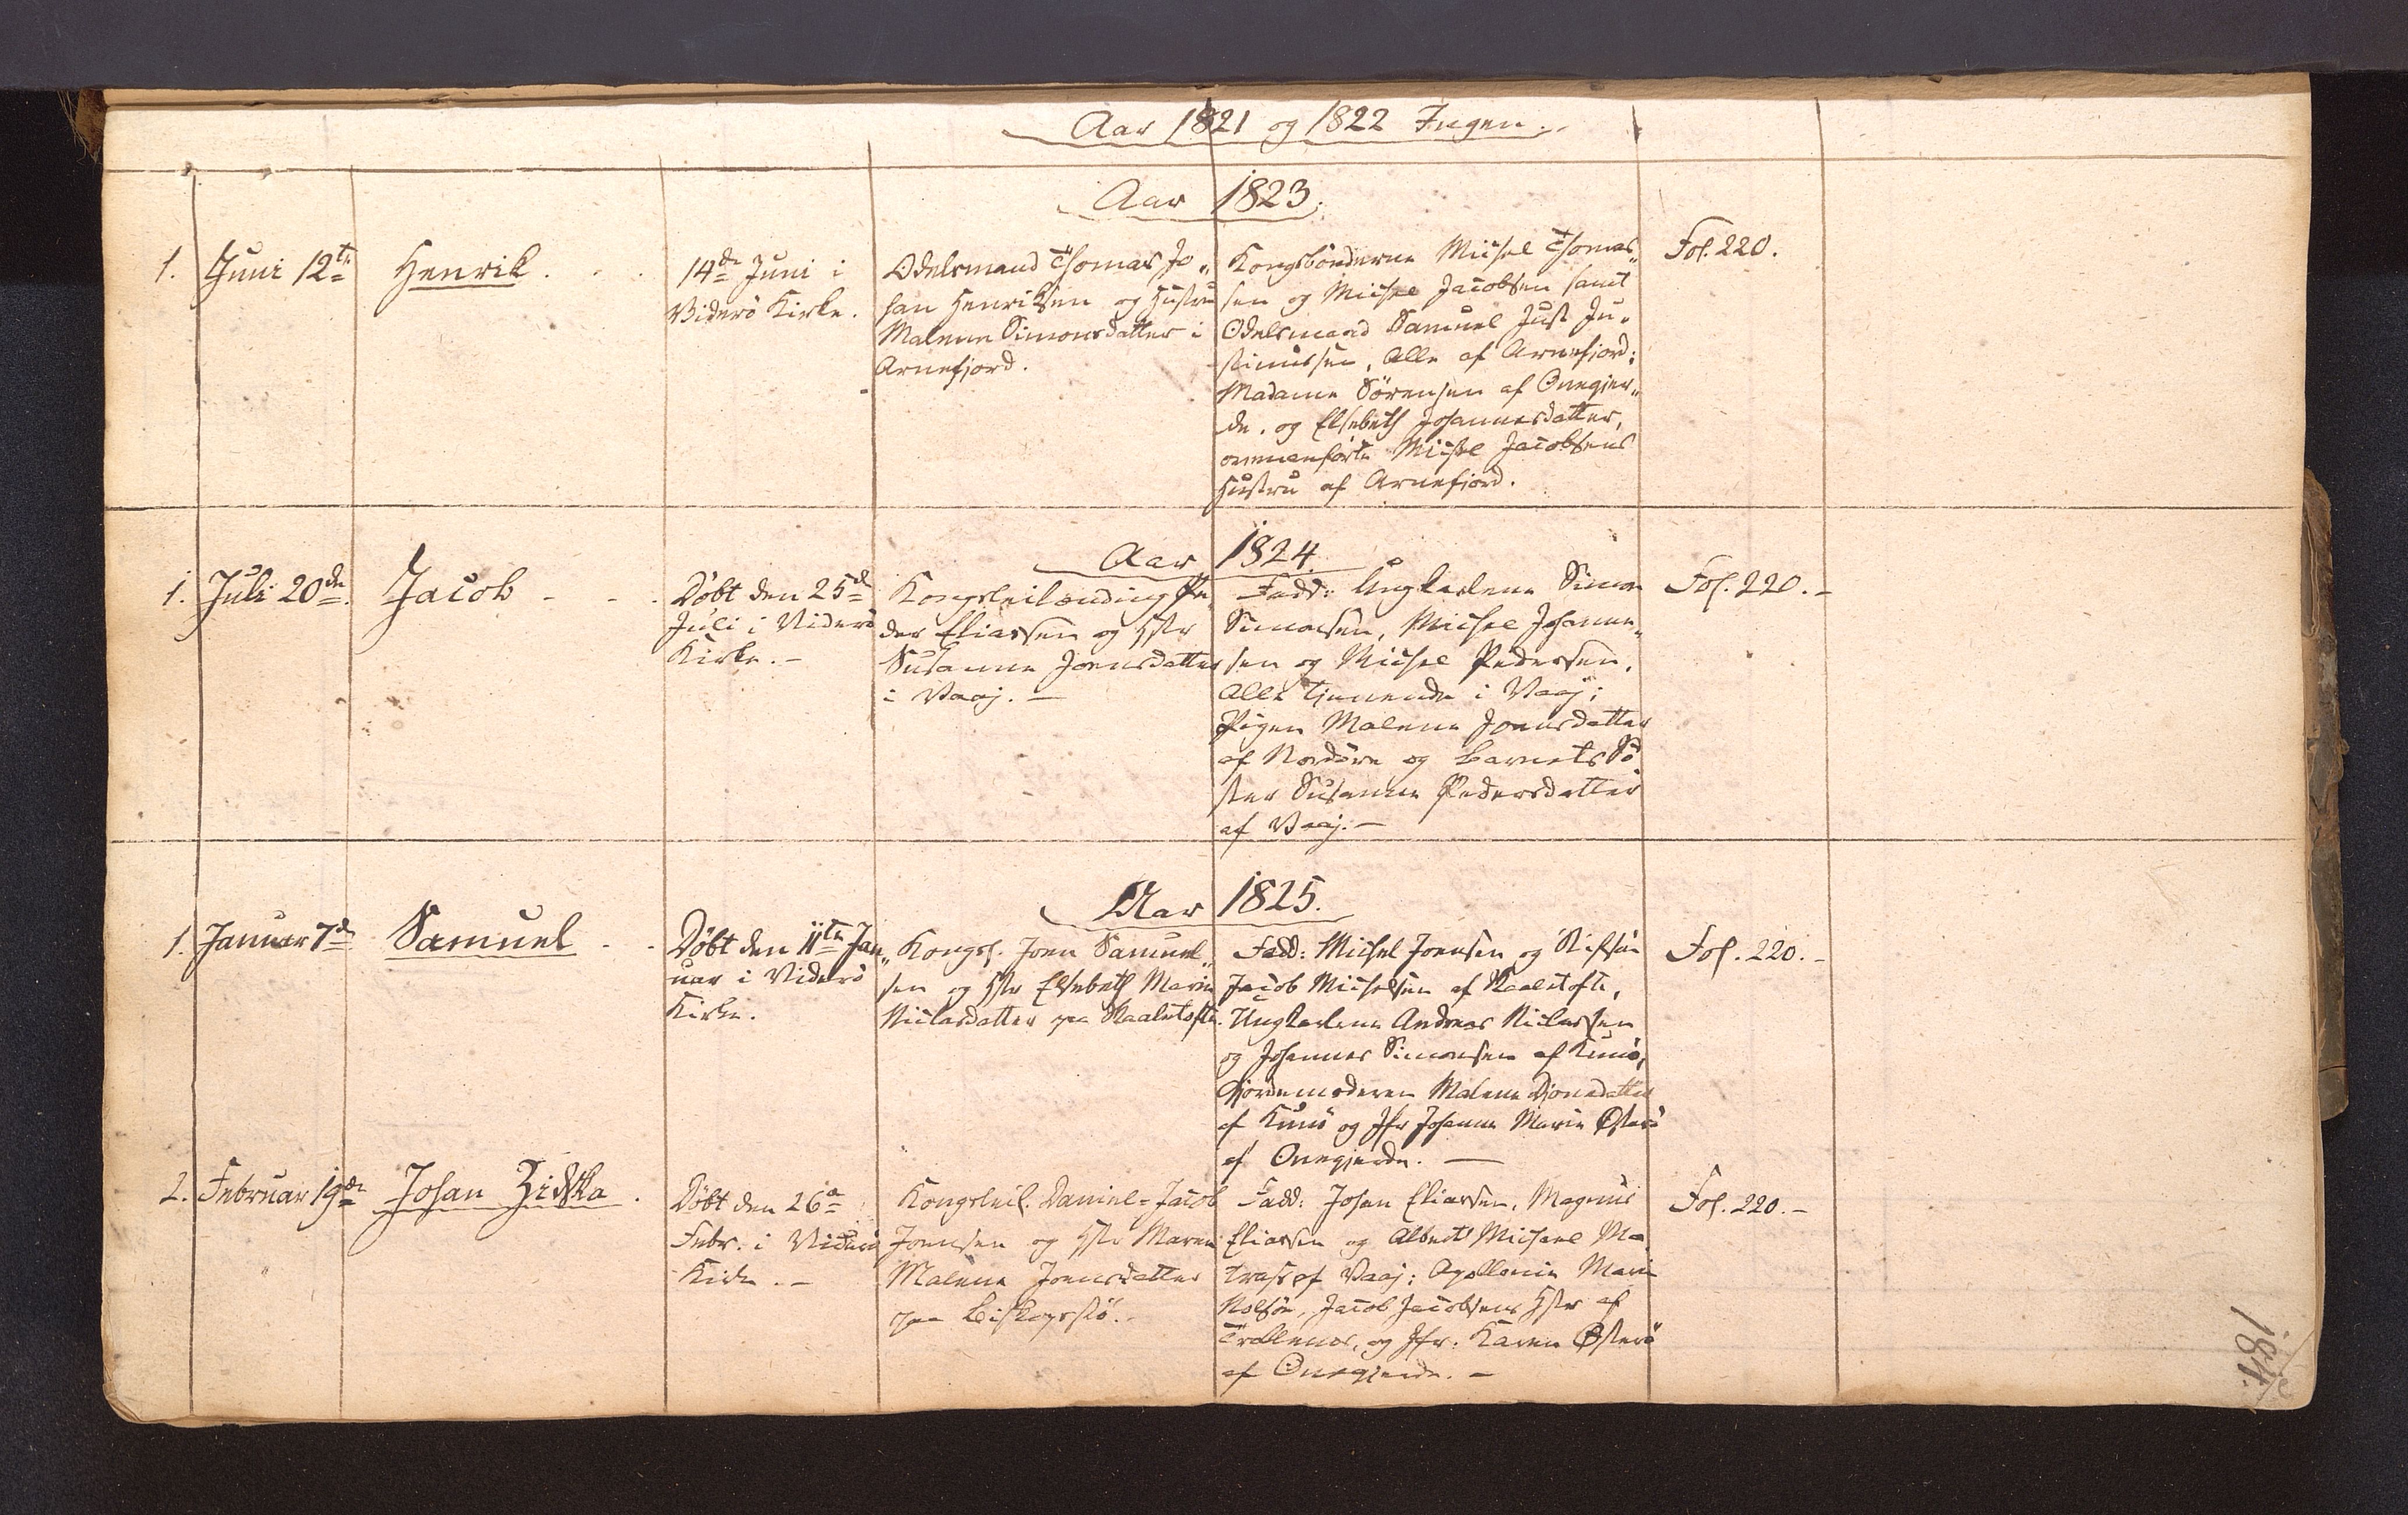 Aar 1821 og 1822 Ingen.
Aar 1823.
1.
Juni 12te
Henrik
14de Juni i
Viderö Kirke.
Odelsmand Thomas Jo„
han Henriksen og Hustru
Malene Simonsdatter i
Arnefjord.
Kongsbönderne Michel Thomas„
sen og Michel Jacobsen samt
Odelsmand Samuel Just Ju„
stinussen, Alle af Arnefjord;
Madame Sörensen af Onegjer„
de, og Elsebeth Johannesdatter,
ommenförte Michel Jacobsens
Hustru af Arnefjord.
Fol. 220.
Aar 1824.
1.
Juli 20de
Jacob
Döbt den 25de
Juli i Viderö
Kirke.-
Kongsleilænding Pe„
der Eliassen og Hstr
Susanne Joensdatter
i Vaaj.-
Fadd: Ungkarlene Simon
Simonsen, Michel Johanne„
sen og Michel Pedersen,
Alle tjenende i Vaaj;
Pigen Malene Joensdatter
af Nordöre og Barnets Sö
ster Susanne Pedersdatter
af Vaaj.-
Fol. 220.-
Aar 1825.
1.
Januar 7de
Samuel
Döbt den 11te Jan„
uar i Viderö
Kirke.
Kongsf. Joen Samuel„
sen og Hstr Elsebeth Marie
Niclasdatter paa Skaaletofte.
Fadd: Michel Joensen og Stifsön
Jacob Michelsen af Skaaletofte,
Ungkarlene Andreas Niclassen
og Johannes Simonsen af Kunö,
Gjordemoderen Malene Djonedatter
af Kunö og Jfr Johanne Marie Østerö
af Onegjerde.-
Fol. 220.-
2.
Februar 19de
Johan Zidska
Döbt den 26de
Febr. i Viderö
Kirke.-
Kongsleil. Daniel=Jacob
Joensen og Hstr Maren
Malene Joensdatter
paa Biskopsstö.
Fadd: Johan Eliassen, Magnus
Eliassen og Albert Michael Ma
tras af Vaaj; Apollonia Marie
Nolsöe, Jacob Jacobsens Hstr af
Trøllenes, og Jfr: Karen Østerö
af Onegjerde.-
Fol. 220.-
184.